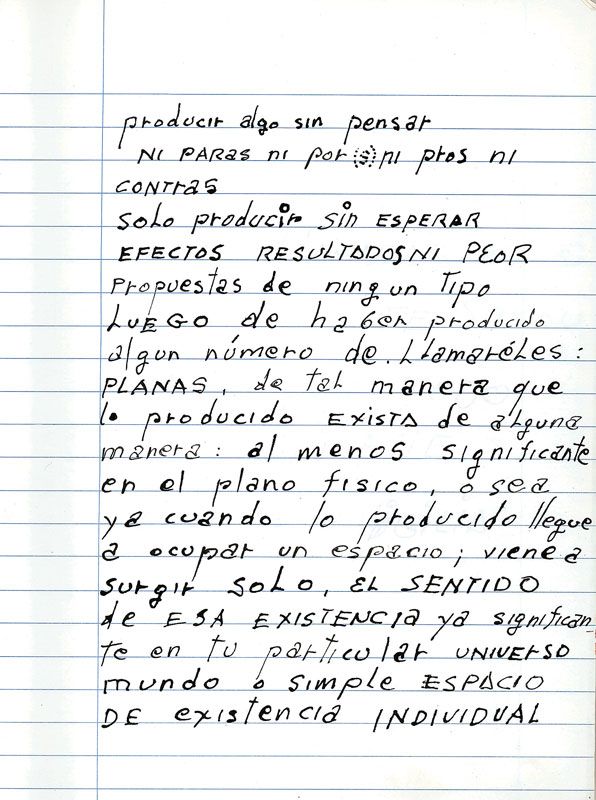 producir algo sin pensar
NI PARAS ni por(s) ni pros ni
CONTRAS
SOLO producir Sin ESPERAR
EFECTOS RESULTADOS NI PEOR
PROPUESTAS de ningun TIPO
LUEGO de haber producido
algun número de. LLamaréLes:
PLANAS, de tal manera que
lo producido EXISTA de alguna
manera: al menos significante
en el plano fisico, o sea
ya cuando lo producido llegue
a ocupar un espacio; viene a
surgir SOLO, EL SENTIDO
de ESA EXISTENCIA ya significan
te en tu particular UNIVERSO
mundo o simple ESPACIO
DE existencia INDIVIDUAL